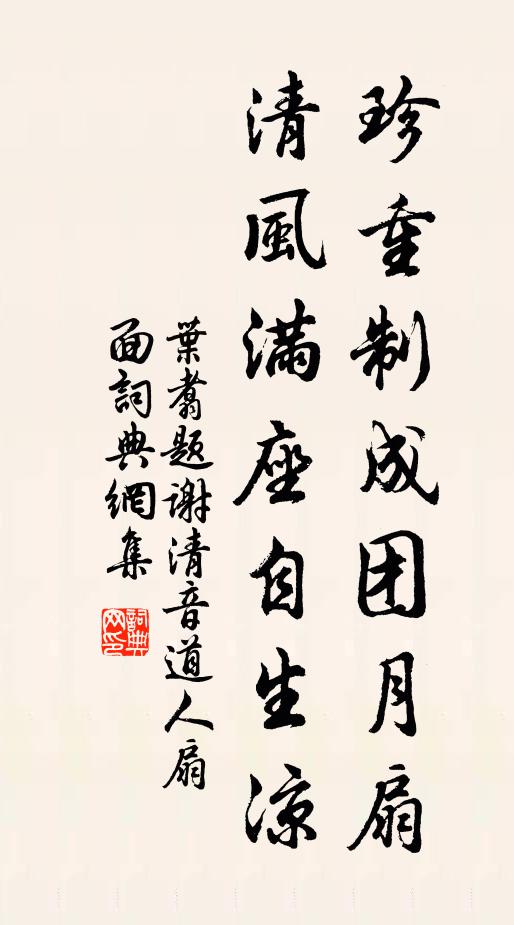 珍重制成团月扇
清風满座自生涼
葉翥题谢清音道人扇
面詞典網集
詞典
网印